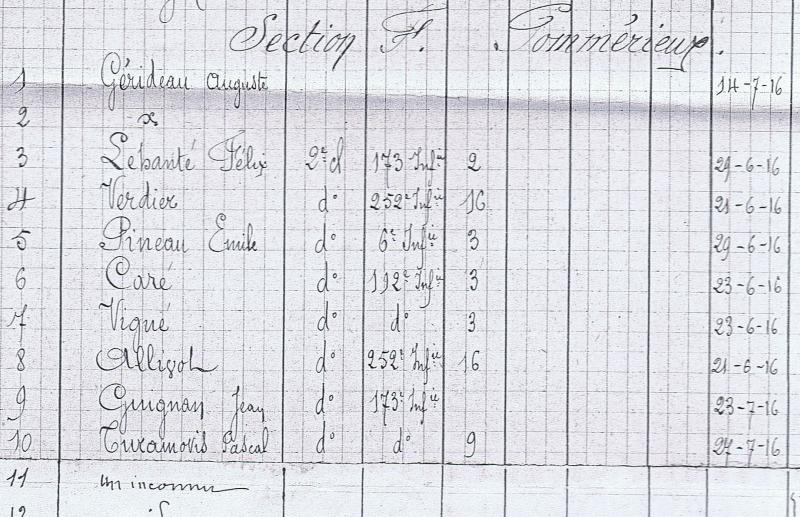 Section F. Pommérieux.
1 Gérideau Auguste 14-7-16
2 x
3 Lebanté Félix 2e cl 173 Infie 2 29-6-16
4 Verdier do 252e Infie 16 21-6-16
5 Pineau Emile do 6e Infie 3 29-6-16
6 Caré do 112e Infie 3 23-6-16
7 Vigné do do 3 23-6-16
8 Alligol do 252e Infie 16 21-6-16
9 Guignan Jean do 173e Infie 23-7-16
10 Turamovis Pascal do do 9 27-7-16
11 un inconnu
12